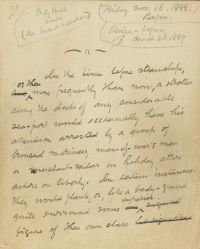 Friday Nov. 16, 1888.
Began.
Revise - began
March 2d 1889
In the time before steamships,
or then more frequently than now, a stroller
along the docks of any considerable
sea-port would occasionally have his
attention arrested by a group of
bronzed mariners, man-of-war's men
or merchant-sailors in holiday attire
ashore on liberty. In certain instances
they would flank, or, like a body-guard
quite surround some superior
figure of their own class